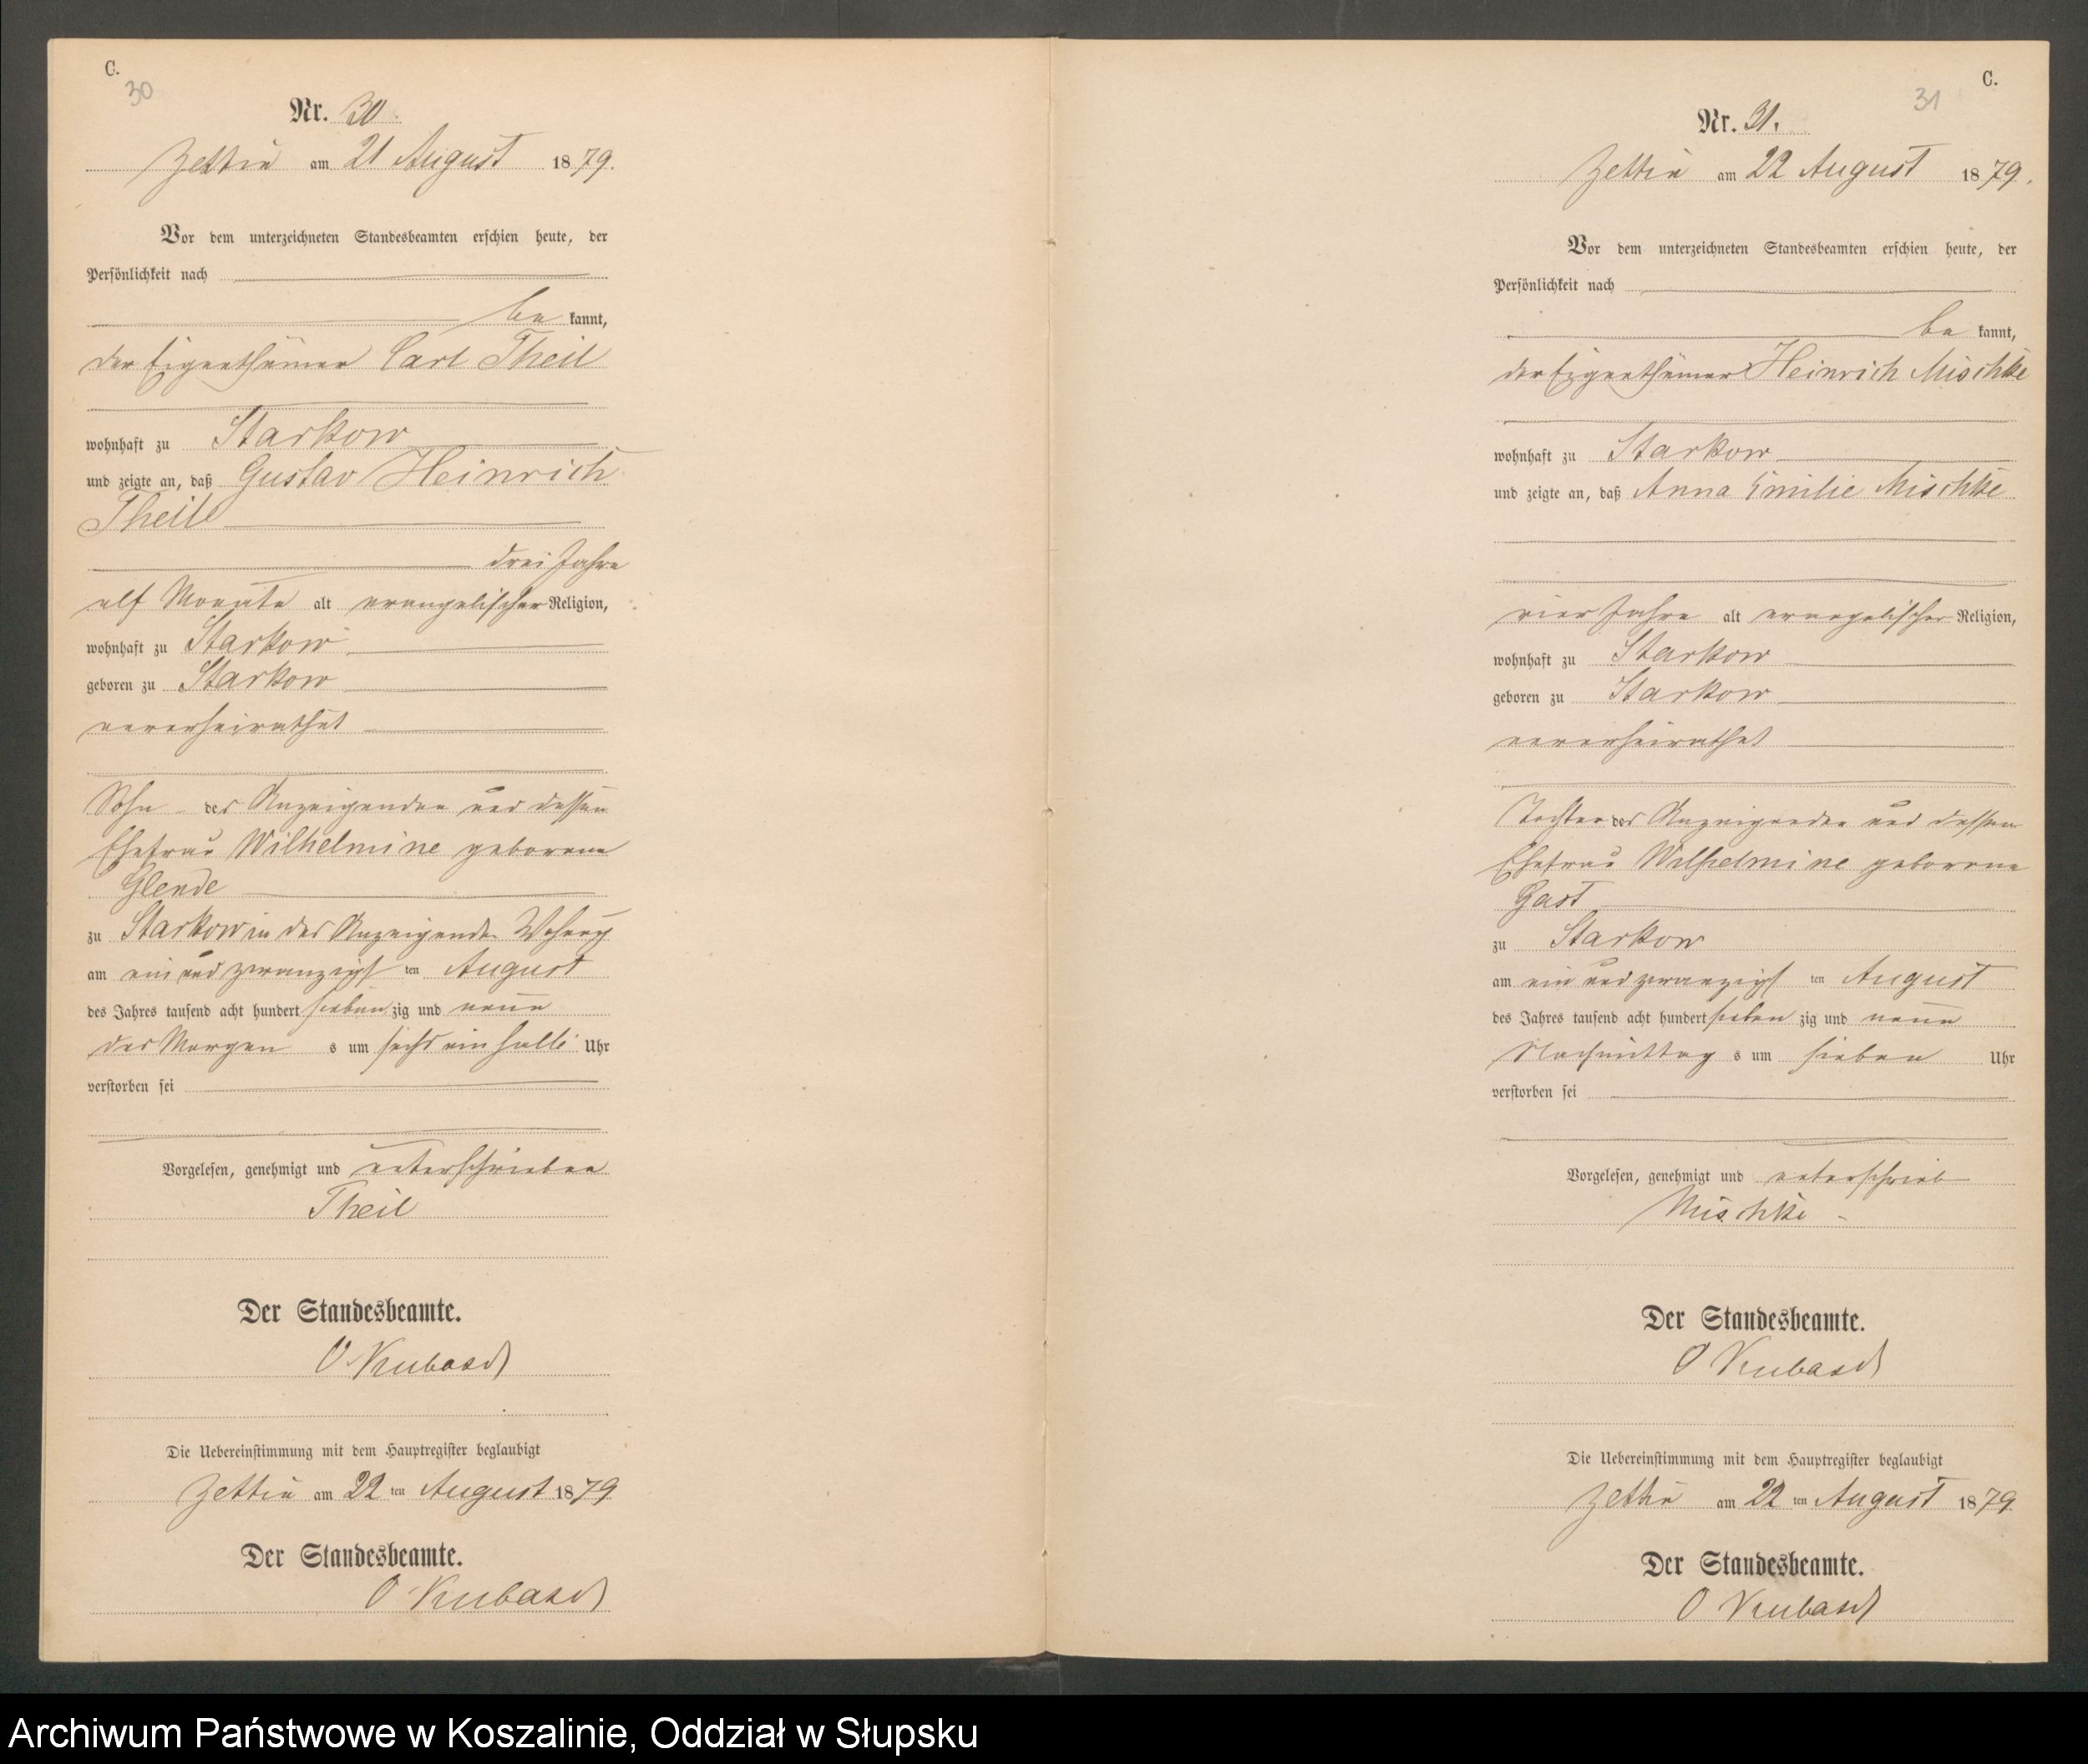 C.
30
Nr. 30.
Zettin am 21 August 1879.
Vor dem unterzeichneten Standesbeamten erschien heute, der
Persönlichkeit nach
be kannt,
der Eigenthümer Carl Theil
wohnhaft zu Starkow
und zeigte an, daß Gustav Heinrich
Theil
drei Jahre
elf Monate alt evangelischer Religion,
wohnhaft zu Starkow
geboren zu Starkow
unverheirathet
Sohn des Anzeigenden und dessen
Ehefrau Wilhelmine geborene
Glende
zu Starkow in des Anzeigenden Wohnung
am ein und zwanzigsten August
des Jahres tausend acht hundert siebenzig und neun
des Morgens um sechs ein halb Uhr
verstorben sei
Vorgelesen, genehmigt und unterschrieben
Theil
Der Standesbeamte.
O Kubasch
Die Uebereinstimmung mit dem Hauptregister beglaubigt
Zettin am 22 ten August 1879
Der Standesbeamte.
O Kubasch
C.
31
Nr. 31.
Zettin am 22 August 1879.
Vor dem unterzeichneten Standesbeamten erschien heute, der
Persönlichkeit nach
be kannt,
der Eigenthümer Heinrich Mischke
wohnhaft zu Starkow
und zeigte an, daß Anna Emilie Mischke
vier Jahre alt evangelischer Religion,
wohnhaft zu Starkow
geboren zu Starkow
unverheirathet
Tochter des Anzeigenden und dessen
Ehefrau Wilhelmine geborene
Gast
zu Starkow
am ein und zwanzigsten August
des Jahres tausend acht hundert siebenzig und neun
Nachmittags um sieben Uhr
verstorben sei
Vorgelesen, genehmigt und unterschrieb
Mischke
Der Standesbeamte.
O Kubasch
Die Uebereinstimmung mit dem Hauptregister beglaubigt
Zettin am 22 ten August 1879
Der Standesbeamte.
O Kubasch
Archiwum Państwowe w Koszalinie, Oddział w Słupsku